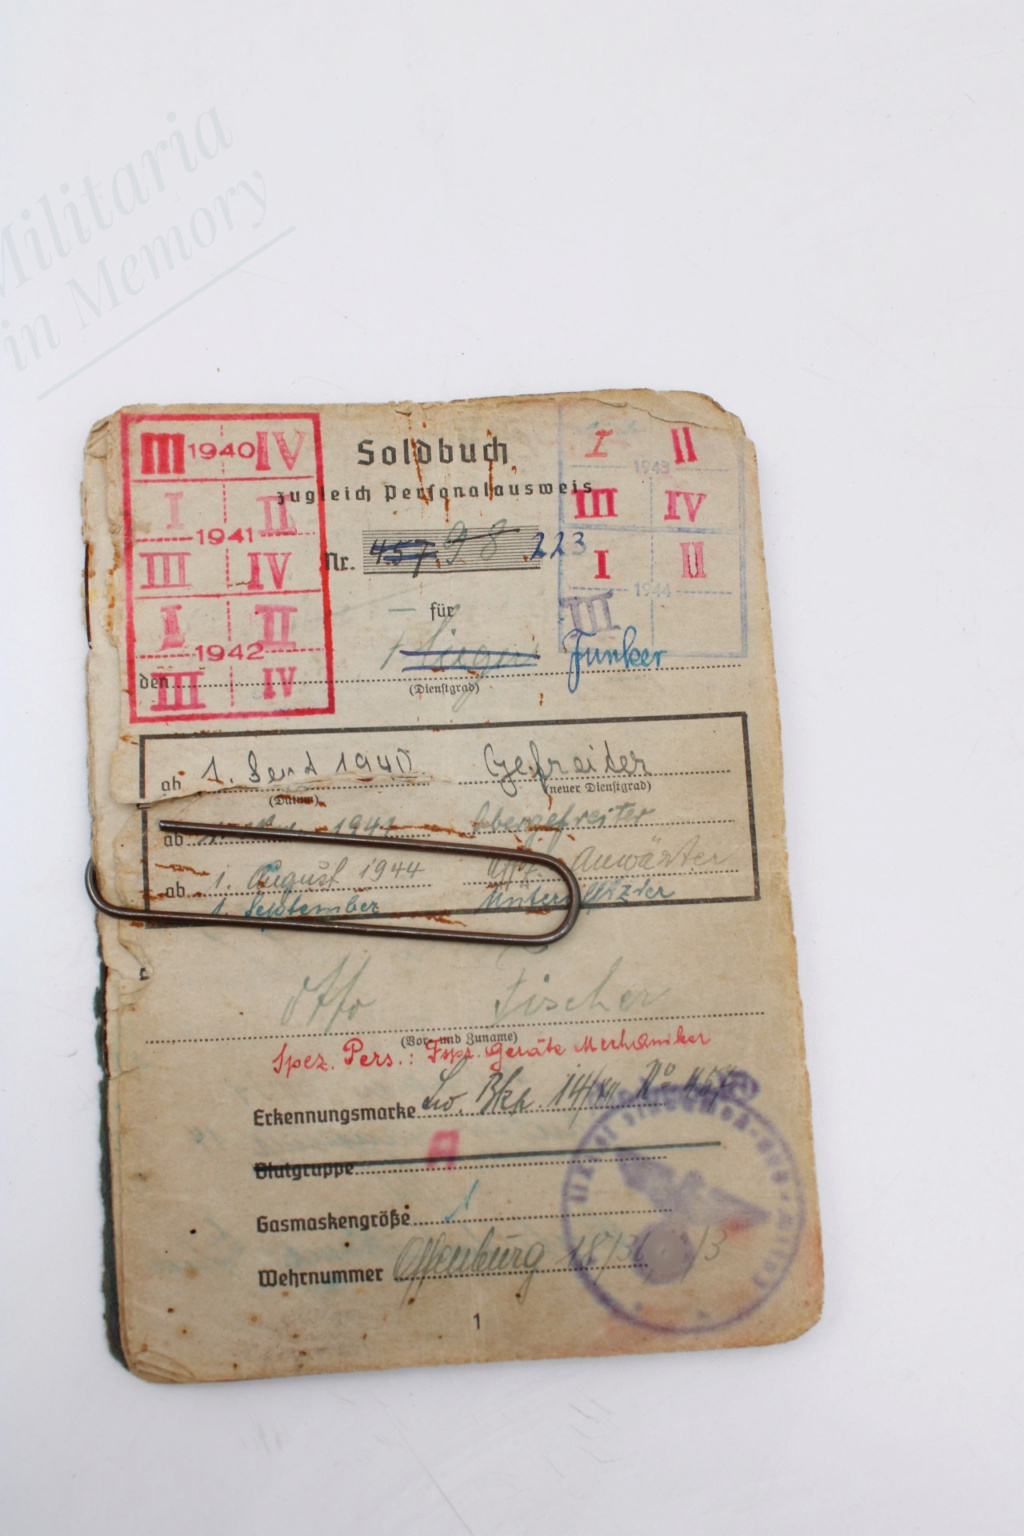 Militaria
in Memory
III 1940 IV
I II
1941
III IV
I II
1942
III IV
Soldbuch
zugleich Personalausweis
Nr. 457 98 223
I II
1943
III IV
I II
1944
III
für
den Flieger Funker
(Dienstgrad)
ab 1. Sept 1940 Gefreiter
(Datum) (neuer Dienstgrad)
ab 1941 Obergefreiter
ab 1. August 1944 Uffz. Anwärter
1. September Unteroffizier
Otto Fischer
(Vor- und Zuname)
Spez. Pers.: Geräte Mechaniker
Erkennungsmarke 14/ No 457
Blutgruppe A
Gasmaskengröße 1
Wehrnummer Offenburg 18/36 /3
1